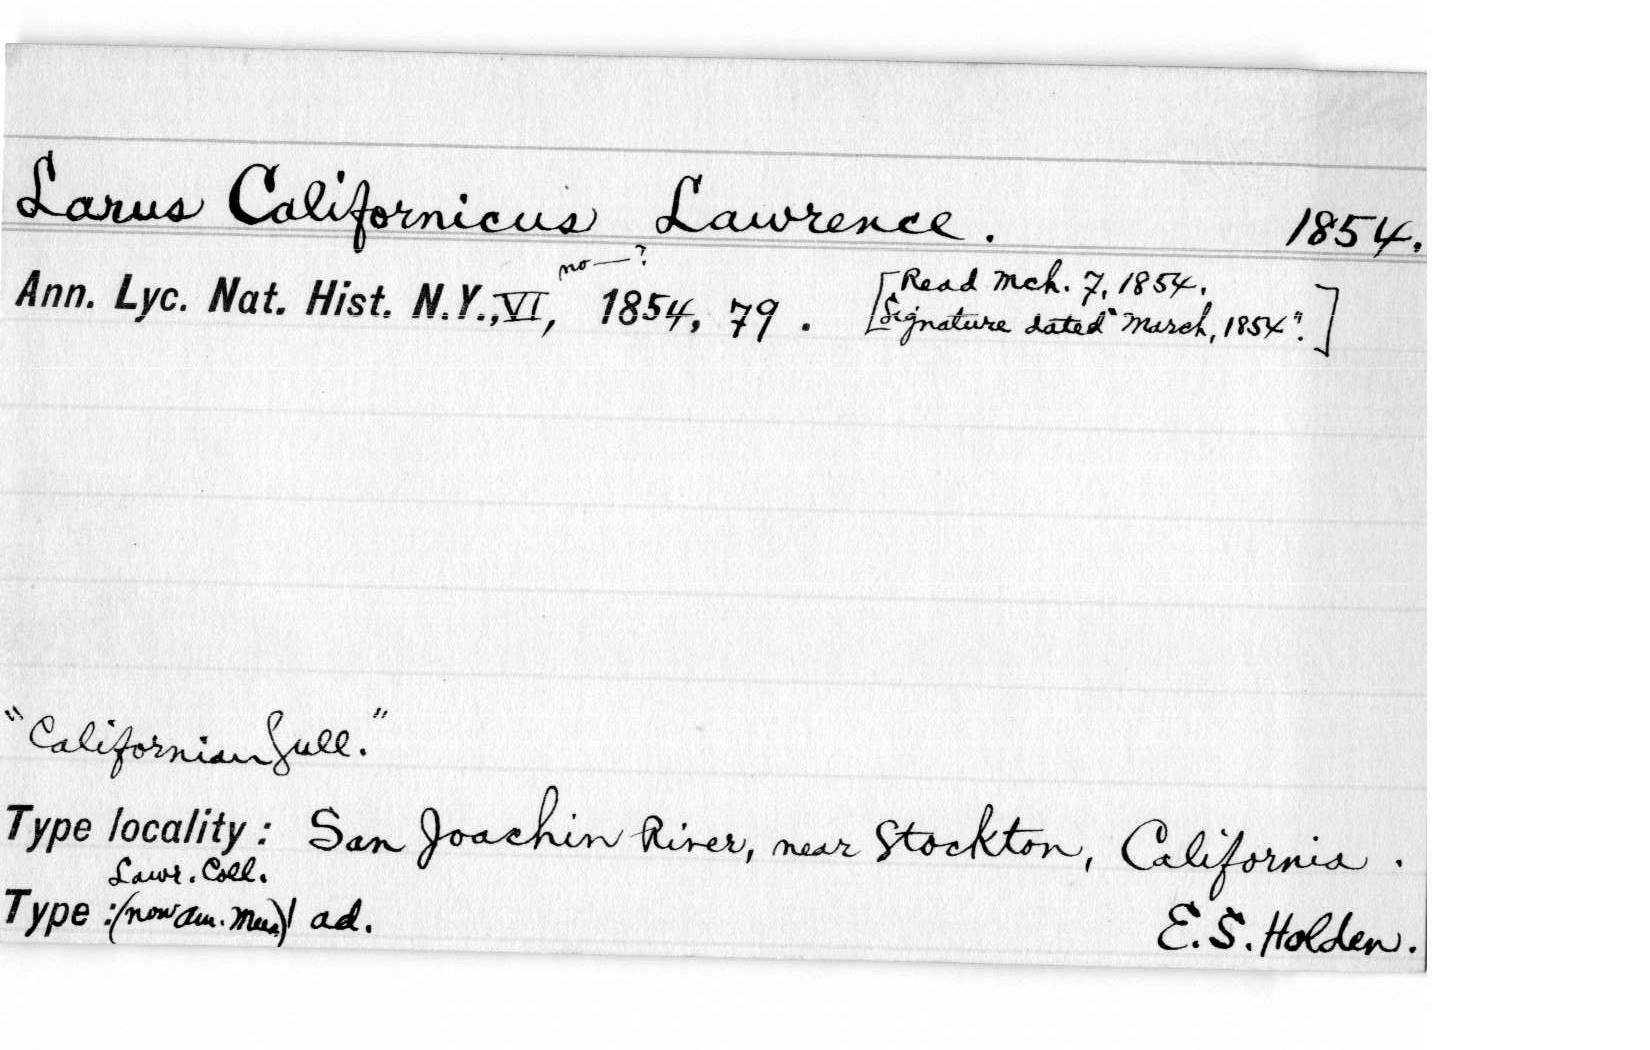 Larus Californicus Lawrence. 1854.
no—?
Ann. Lyc. Nat. Hist. N.Y., VI, 1854, 79. [Read Mch. 7, 1854.
Signature dated "March, 1854".]
"Californian Gull."
Type locality: San Joachin River, near Stockton, California.
Lawr. Coll.
Type: (now Am. Mus.) 1 ad. E. S. Holden.